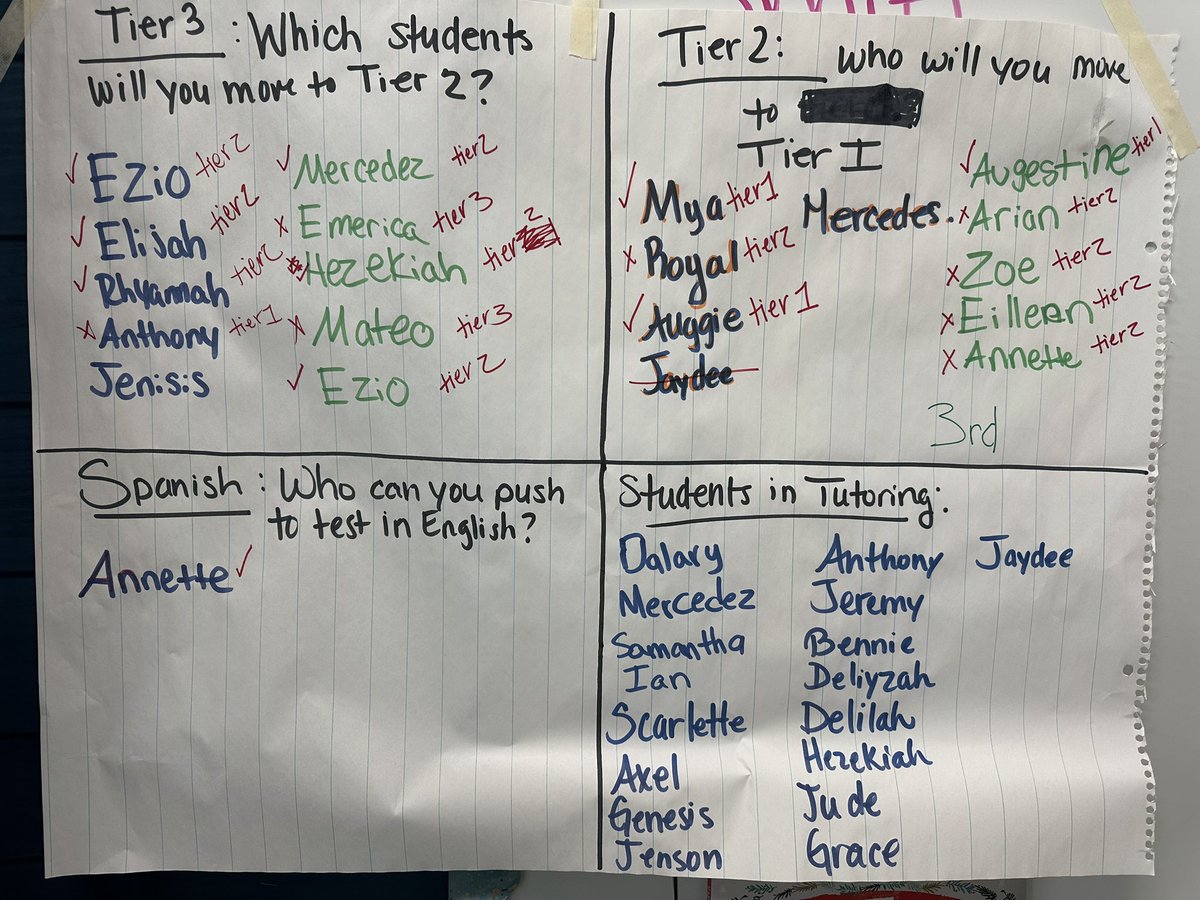 Tier 3 : Which students
will you move to Tier 2?
✓ Ezio tier2
✓ Elijah tier2
✓ Rhyannah tier2
x Anthony tier1
Jenisis
✓ Mercedez tier2
x Emerica tier3
Hezekiah tier 2
x Mateo tier3
✓ Ezio tier2
Tier 2: who will you move
to
Tier I
✓ Mya tier1
x Royal tier2
✓ Auggie tier1
Jaydee
Mercedes.
✓ Augestine tier1
x Arian tier2
x Zoe tier2
x Eilleen tier2
x Annette tier2
3rd
Spanish : Who can you push
to test in English?
Annette ✓
Students in Tutoring:
Dalary
Mercedez
Samantha
Ian
Scarlette
Axel
Genesis
Jenson
Anthony
Jeremy
Bennie
Deliyzah
Delilah
Hezekiah
Jude
Grace
Jaydee